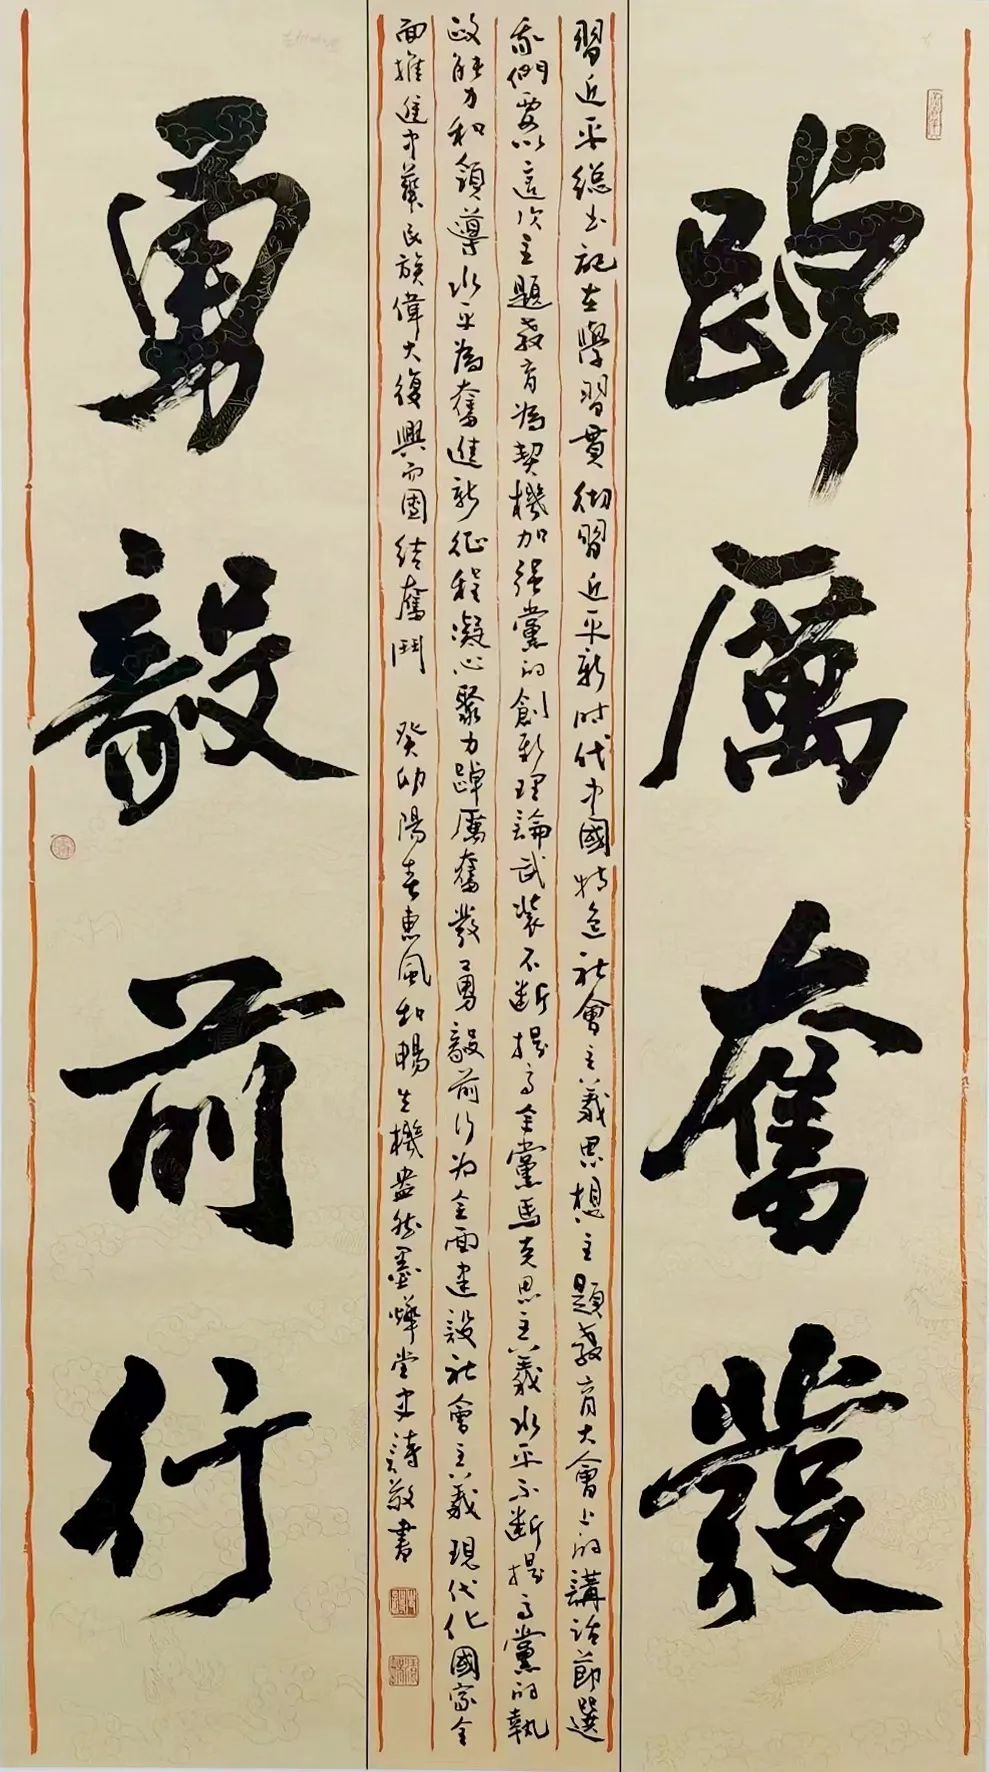 踔厲奮發
習近平總书記在學習貫彻習近平新时代中國特色社會主義思想主題教育大會上的講话節選
我們要以這次主題教育為契機加强黨的創新理論武装不断提高全黨馬克思主義水平不断提高黨的執
政能力和領導水平為奮進新征程凝心聚力踔厲奮發勇毅前行为全面建設社會主義現代化國家全
面推進中華民族偉大復興而團结奮鬥 癸卯陽春惠風和暢生機盎然墨燁堂史詩敬書
勇毅前行